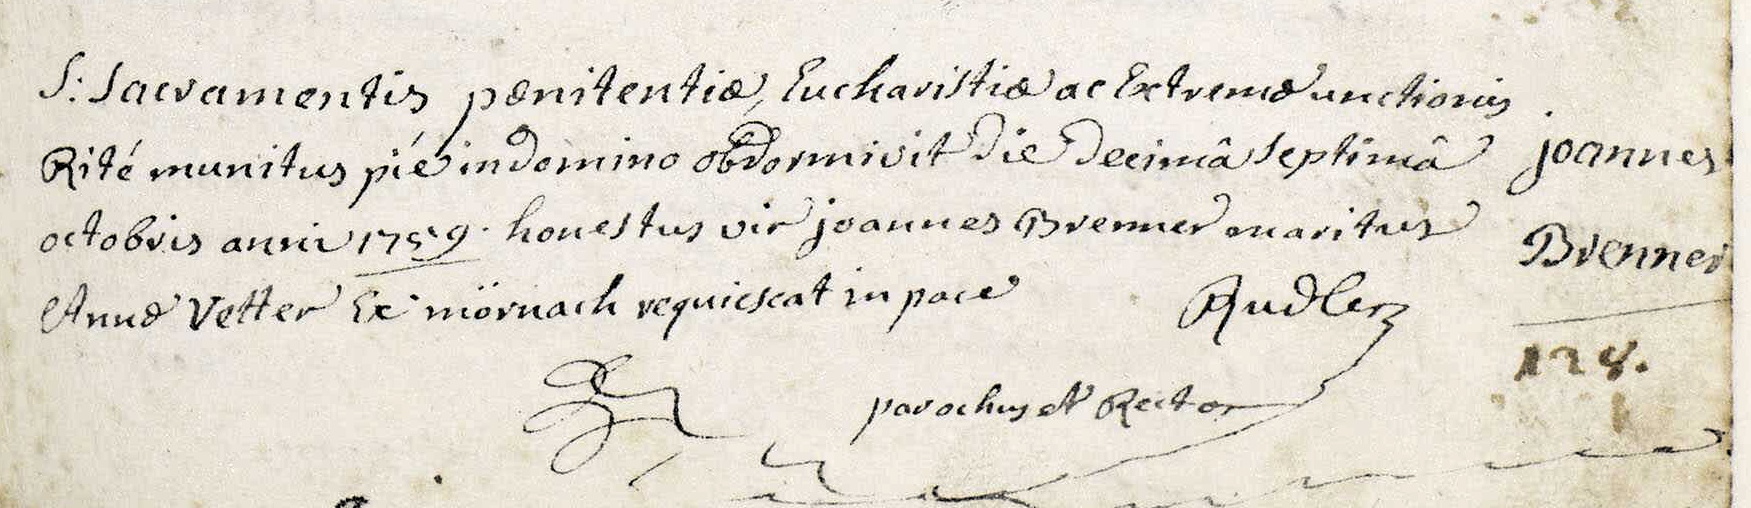 S: Sacramentis pœnitentiæ, Eucharistiæ ac Extremæ unctionis
Rité munitus pié in domino obdormivit die decimâ septimâ
octobris anni 1759. honestus vir joannes Brenner maritus
Annæ Vetter Ex mörnach requiescat in pace
Rudler
parochus et Rector
joannes
Brenner
128.